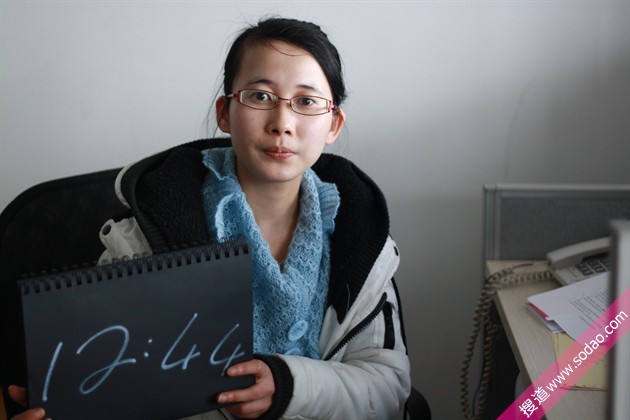 12:44
搜道www.sodao.com